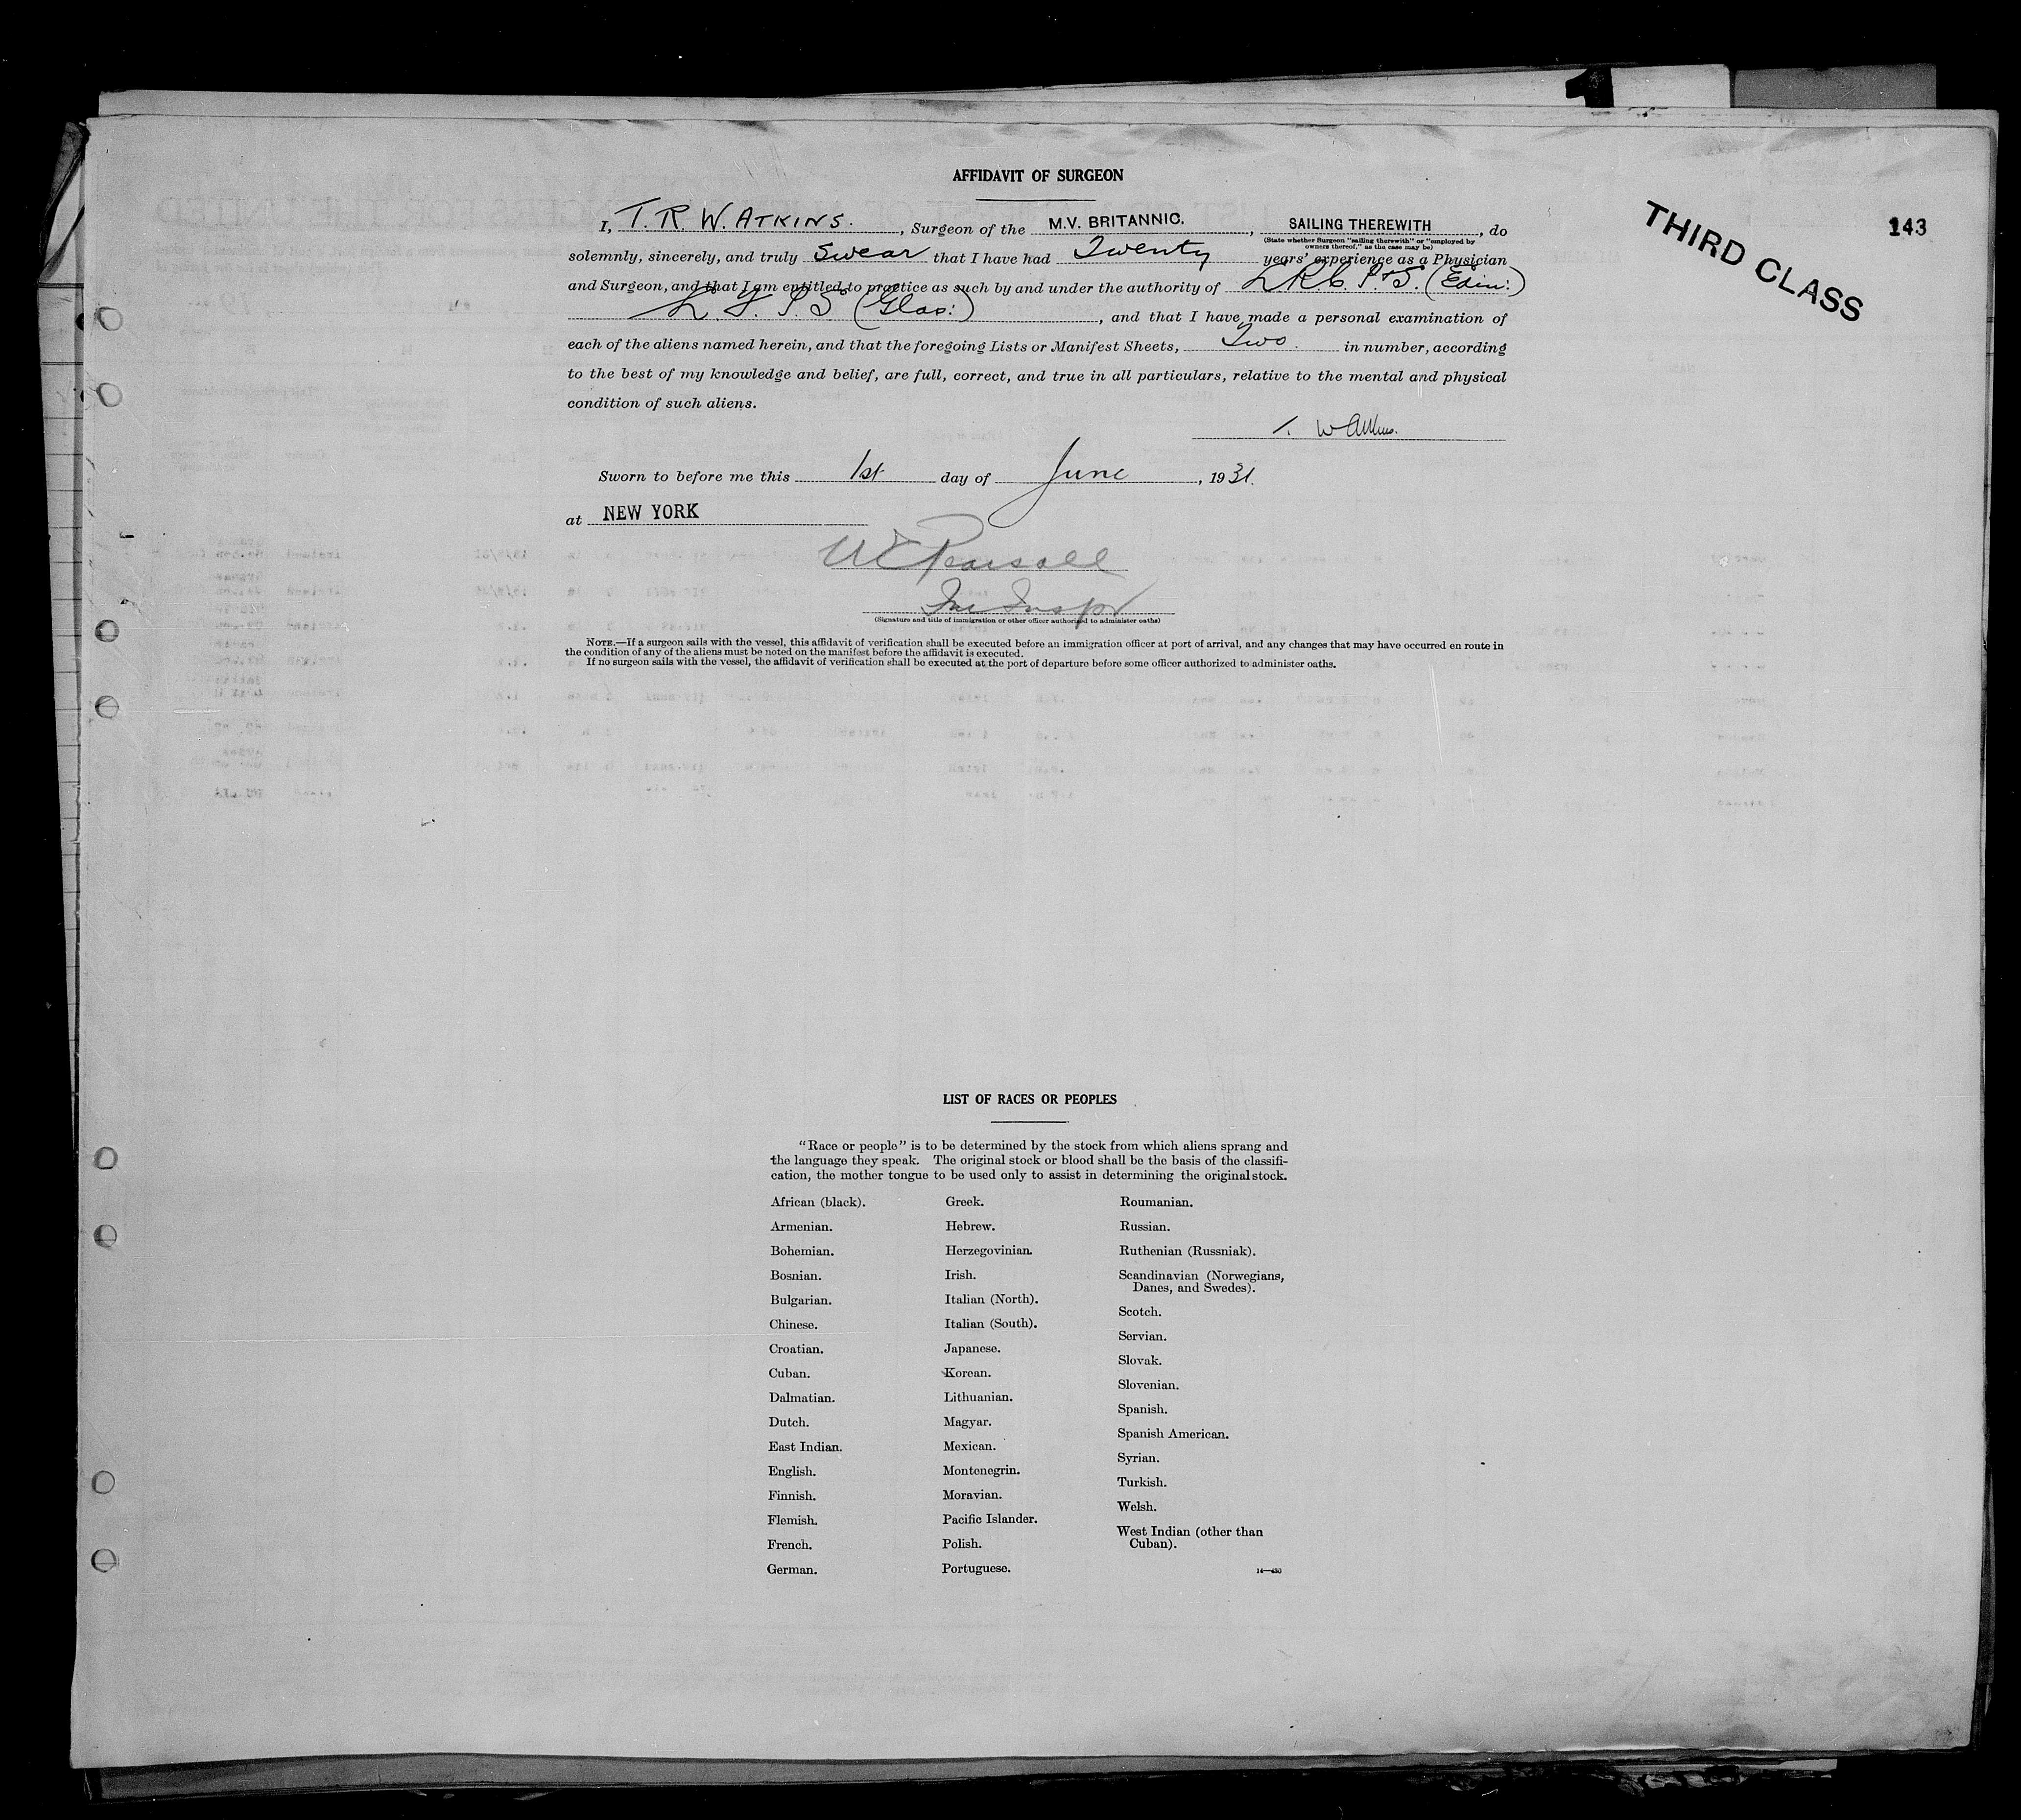 AFFIDAVIT OF SURGEON
THIRD CLASS
143
I, T. R. WATKINS. , Surgeon of the M.V. BRITANNIC. , SAILING THEREWITH , do
(State whether Surgeon "sailing therewith" or "employed by
owners thereof," as the case may be)
solemnly, sincerely, and truly swear that I have had Twenty years' experience as a Physician
and Surgeon, and that I am entitled to practice as such by and under the authority of L.R.C.P.+S. (Edin:)
L.F.P.S (Glas:) , and that I have made a personal examination of
each of the aliens named herein, and that the foregoing Lists or Manifest Sheets, Two. in number, according
to the best of my knowledge and belief, are full, correct, and true in all particulars, relative to the mental and physical
condition of such aliens.
T. Watkins.
Sworn to before me this 1st day of June , 1931.
at NEW YORK
W Pearsall
Im Inspr
(Signature and title of immigration or other officer authorized to administer oaths)
NOTE.—If a surgeon sails with the vessel, this affidavit of verification shall be executed before an immigration officer at port of arrival, and any changes that may have occurred en route in
the condition of any of the aliens must be noted on the manifest before the affidavit is executed.
If no surgeon sails with the vessel, the affidavit of verification shall be executed at the port of departure before some officer authorized to administer oaths.
LIST OF RACES OR PEOPLES
"Race or people" is to be determined by the stock from which aliens sprang and
the language they speak. The original stock or blood shall be the basis of the classifi-
cation, the mother tongue to be used only to assist in determining the original stock.
African (black).
Armenian.
Bohemian.
Bosnian.
Bulgarian.
Chinese.
Croatian.
Cuban.
Dalmatian.
Dutch.
East Indian.
English.
Finnish.
Flemish.
French.
German.
Greek.
Hebrew.
Herzegovinian.
Irish.
Italian (North).
Italian (South).
Japanese.
Korean.
Lithuanian.
Magyar.
Mexican.
Montenegrin.
Moravian.
Pacific Islander.
Polish.
Portuguese.
Roumanian.
Russian.
Ruthenian (Russniak).
Scandinavian (Norwegians,
Danes, and Swedes).
Scotch.
Servian.
Slovak.
Slovenian.
Spanish.
Spanish American.
Syrian.
Turkish.
Welsh.
West Indian (other than
Cuban).
14—430